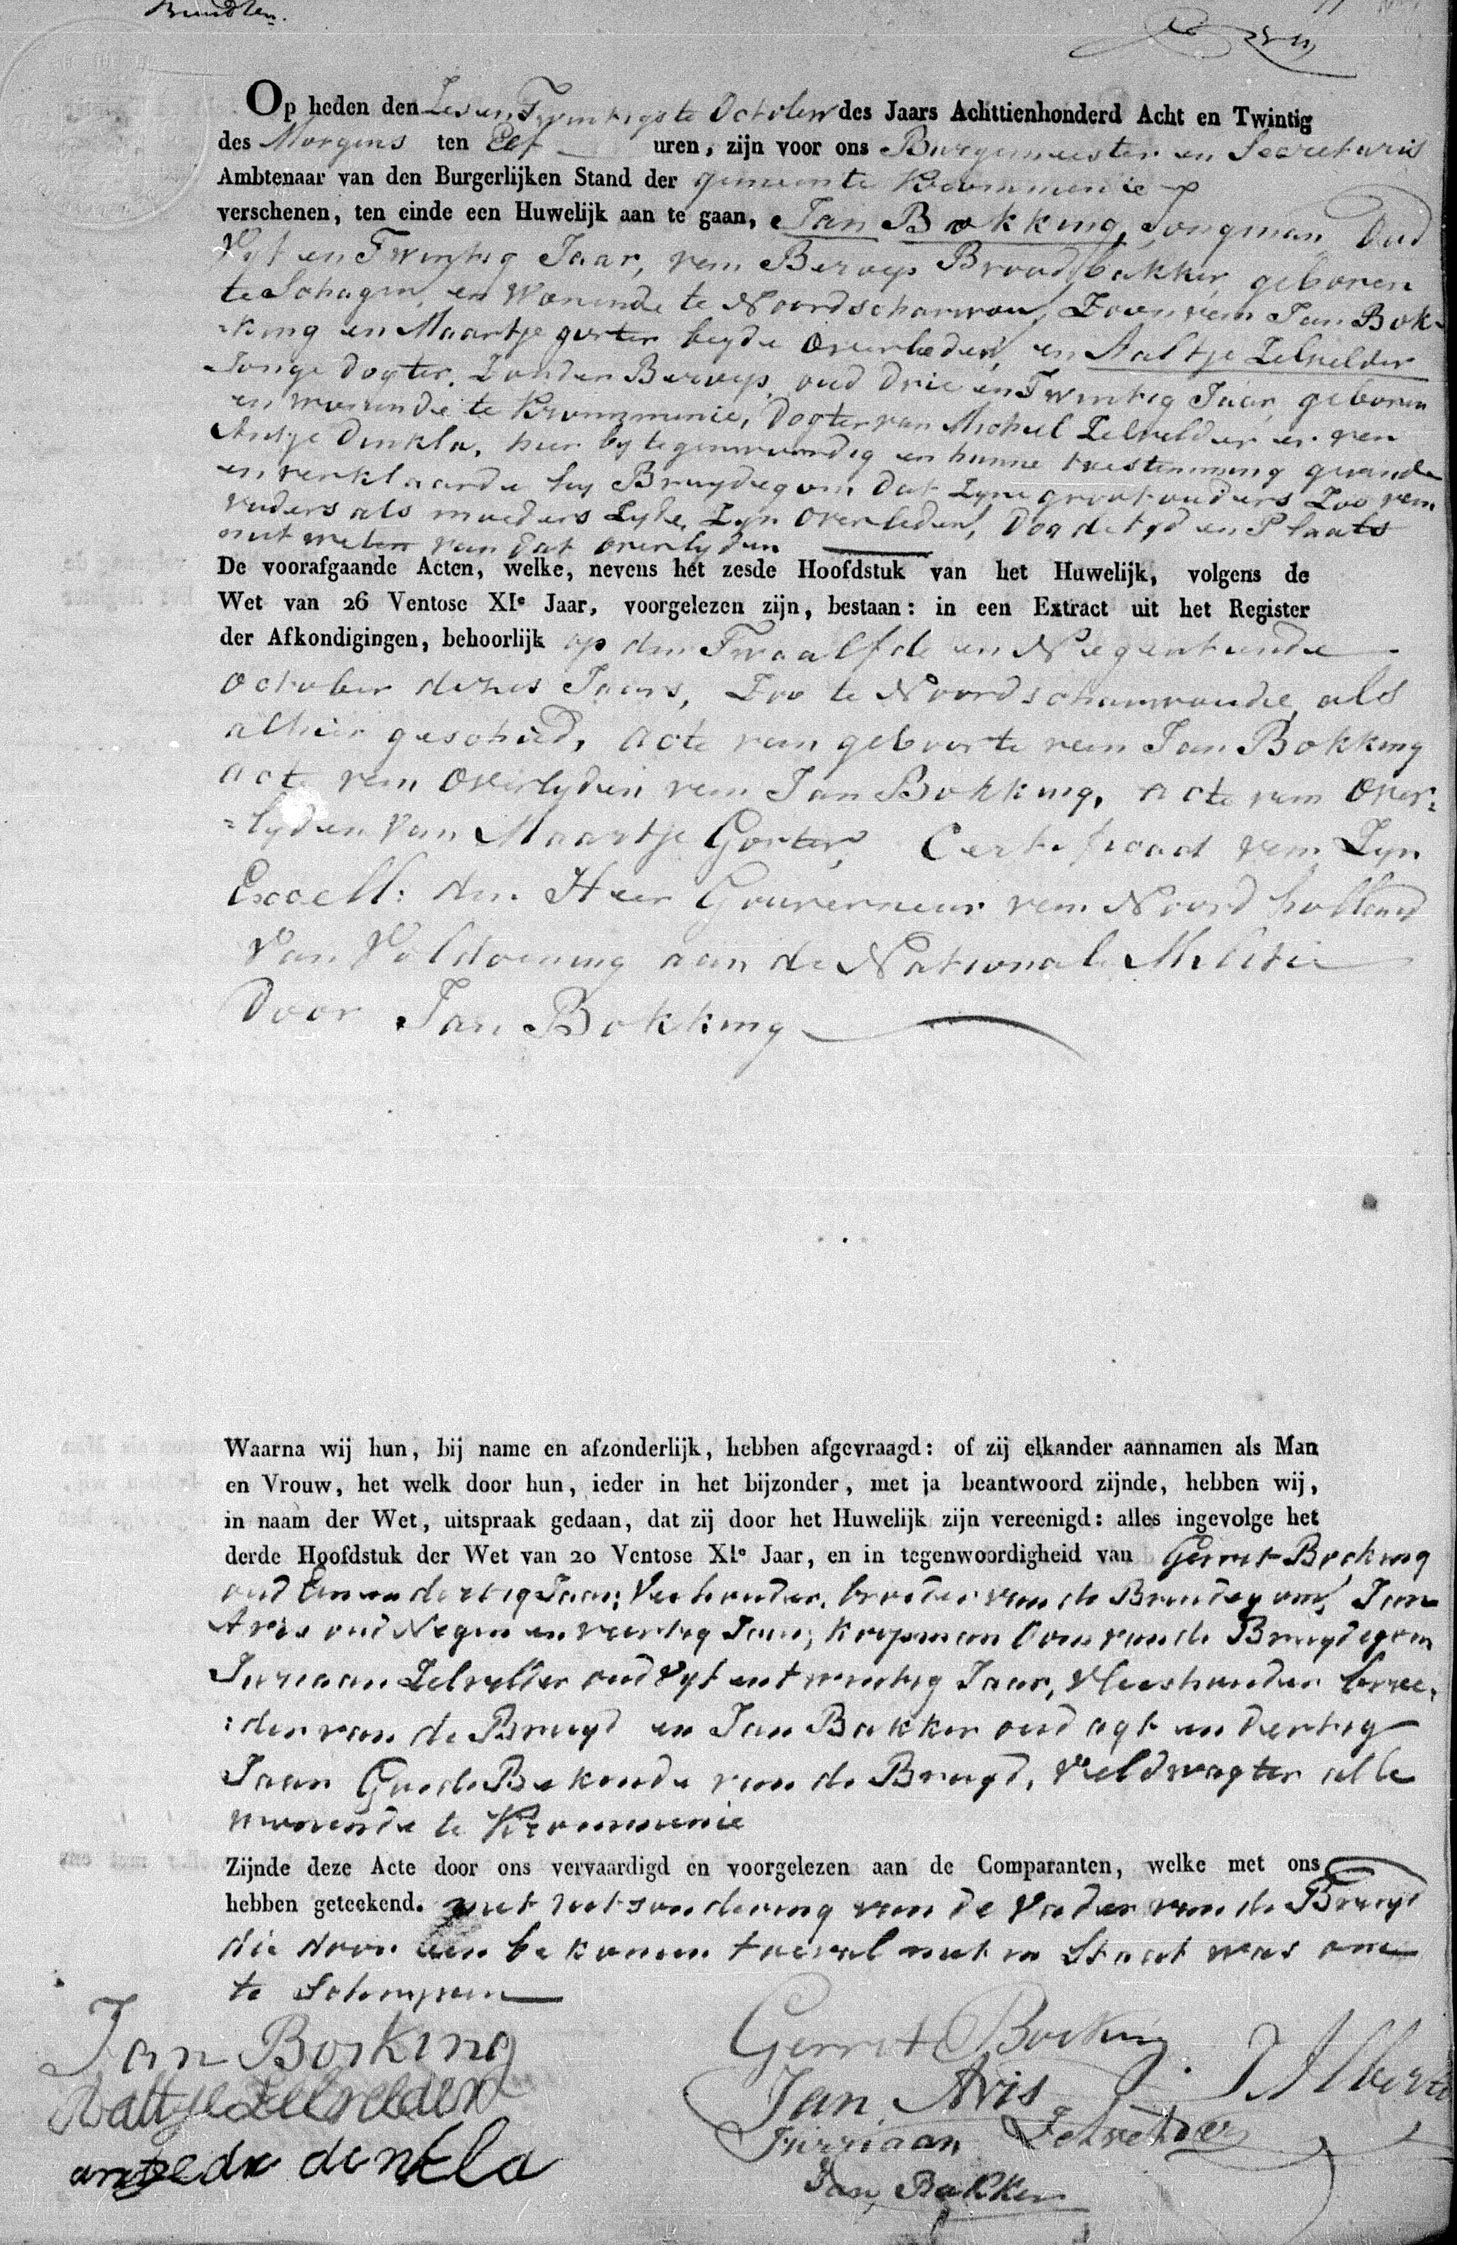 Op heden den Zes en Twintigste October des Jaars Achttienhonderd Acht en Twintig
des Morgens ten Elf uren, zijn voor ons Burgemeester en Secretaris
Ambtenaar van den Burgerlijken Stand der gemeente Krommenie
verschenen, ten einde een Huwelijk aan te gaan, Jan Bokking, Jongman Oud
Vyf en Twintig Jaar, van Beroep Broodbakker, geboren
te Schagen, en wonende te Noordscharwou, Zoon van Jan Bok-
king en Maartje gorter beyde overleden, en Aaltje Zelvelder
Jonge Dogter, Zonder Beroep, oud Drie en Twintig Jaar, geboren
en wonende te Krommenie, Dogter van Michiel Zelvelder en van
Antje Dinkla, hier by tegenwoordig en hunne toestemming gevende
en verklaarde hy Bruydegom dat Zyne grootouders Zoo van
vaders als moeders Zyde, Zyn overleden, Dog de tyd en Plaats
niet weten van dat overlyden
De voorafgaande Acten, welke, nevens het zesde Hoofdstuk van het Huwelijk, volgens de
Wet van 26 Ventose XIe Jaar, voorgelezen zijn, bestaan: in een Extract uit het Register
der Afkondigingen, behoorlijk op den Twaalfde en Negentiende
October dezes Jaars, Zoo te Noordscharwoude, als
alhier geschied, Acte van geboorte van Jan Bokking
acte van Overlyden van Jan Bokking, Acte van Over=
=lyden van Maartje Gorter, Certificaat van Zyn
Excell: den Heer Gouverneur van Noord holland
Van Voldoening aan de Nationale Militie
Door Jan Bokking
Waarna wij hun, bij name en afzonderlijk, hebben afgevraagd: of zij elkander aannamen als Man
en Vrouw, het welk door hun, ieder in het bijzonder, met ja beantwoord zijnde, hebben wij,
in naam der Wet, uitspraak gedaan, dat zij door het Huwelijk zijn vereenigd: alles ingevolge het
derde Hoofdstuk der Wet van 20 Ventose XIe Jaar, en in tegenwoordigheid van Gerrit Bocking
oud Een en dertig Jaar, Veehouder, broeder van de Bruidegom, Jan
Avis oud Negen en veertig Jaar, Koopman Oom van de Bruydegom
Jurriaan Zelvelder oud Vyf en twintig Jaar, Vleeshouder broe:
:der van de Bruyd en Jan Bakker oud agt en dertig
Jaar Goede Bekende van de Bruyd, Veldwagter alle
wonende te Krommenie
Zijnde deze Acte door ons vervaardigd en voorgelezen aan de Comparanten, welke met ons
hebben geteekend. met uitsondering van de Vader van de Bruyd
die door een bekomen toeval niet in Staat was om
te Schryven
Jan Bocking
Gerrit Bocking
Aaltje Zelvelder
Jan Avis
J Albert
Jurriaan Zelvelder
antje dinkla
Jan Bakker